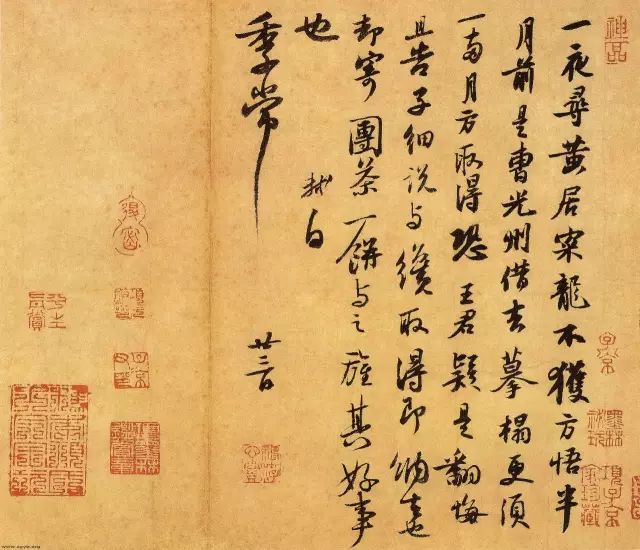 一夜尋黃居寀龍不獲方悟半
月前是曹光州借去摹搨更須
一兩月方取得恐王君疑是翻悔
且告子細說与纔取得即納去也
却寄團茶一餅与之旌其好事
也
軾白
季常
廿三日
神品
項子京家珍藏